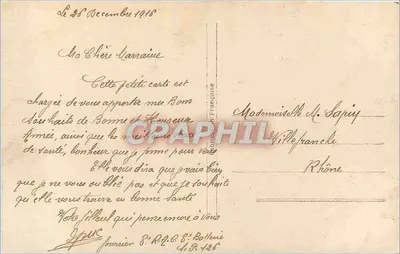 Le 26 Decembre 1916
Ma Chère Marraine
Cette petite carte est
chargée de vous apporter mes Bons
souhaits de Bonne et Heureuse
Année, ainsi que les meilleurs
de santé, bonheur que je forme pour vous
Elle vous dira que je vais bien
que je ne vous oublie pas et que je souhaite
qu'elle vous trouve en bonne santé
Votre filleul qui pense encore à vous
fournier 8e R.A.C. 6e Batterie
S.P. 126
Mademoiselle M. Sapin
Villefranche
Rhône
CARTHAPHILIE
Française